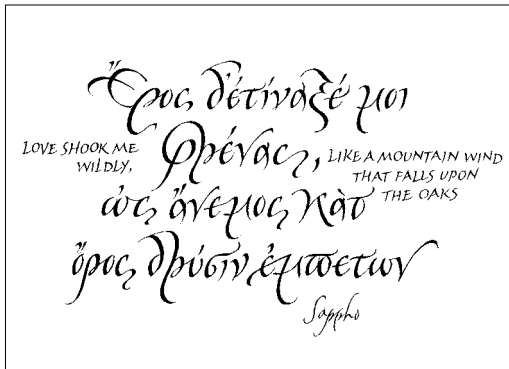 Ἔρος δ'ἐτίναξέ μοι
LOVE SHOOK ME
WILDLY,
φρένας,
LIKE A MOUNTAIN WIND
THAT FALLS UPON
THE OAKS
ὠς ἄνεμος κὰτ
ὄρος δρύσιν ἐμπετων
Sappho